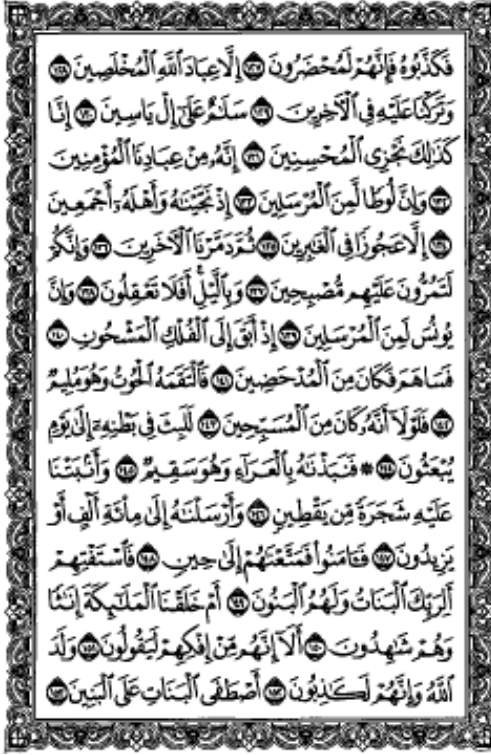 فَكَذَّبُوهُ فَإِنَّهُمْ لَمُحْضَرُونَ ١٢٧ إِلَّا عِبَادَ ٱللَّهِ ٱلْمُخْلَصِينَ ١٢٨
وَتَرَكْنَا عَلَيْهِ فِى ٱلْـَٔاخِرِينَ ١٢٩ سَلَـٰمٌ عَلَىٰٓ إِلْ يَاسِينَ ١٣٠ إِنَّا
كَذَٰلِكَ نَجْزِى ٱلْمُحْسِنِينَ ١٣١ إِنَّهُۥ مِنْ عِبَادِنَا ٱلْمُؤْمِنِينَ
١٣٢ وَإِنَّ لُوطًا لَّمِنَ ٱلْمُرْسَلِينَ ١٣٣ إِذْ نَجَّيْنَـٰهُ وَأَهْلَهُۥٓ أَجْمَعِينَ
١٣٤ إِلَّا عَجُوزًا فِى ٱلْغَـٰبِرِينَ ١٣٥ ثُمَّ دَمَّرْنَا ٱلْـَٔاخَرِينَ ١٣٦ وَإِنَّكُمْ
لَتَمُرُّونَ عَلَيْهِم مُّصْبِحِينَ ١٣٧ وَبِٱلَّيْلِ ۗ أَفَلَا تَعْقِلُونَ ١٣٨ وَإِنَّ
يُونُسَ لَمِنَ ٱلْمُرْسَلِينَ ١٣٩ إِذْ أَبَقَ إِلَى ٱلْفُلْكِ ٱلْمَشْحُونِ ١٤٠
فَسَاهَمَ فَكَانَ مِنَ ٱلْمُدْحَضِينَ ١٤١ فَٱلْتَقَمَهُ ٱلْحُوتُ وَهُوَ مُلِيمٌ
١٤٢ فَلَوْلَآ أَنَّهُۥ كَانَ مِنَ ٱلْمُسَبِّحِينَ ١٤٣ لَلَبِثَ فِى بَطْنِهِۦٓ إِلَىٰ يَوْمِ
يُبْعَثُونَ ١٤٤ ۞ فَنَبَذْنَـٰهُ بِٱلْعَرَآءِ وَهُوَ سَقِيمٌ ١٤٥ وَأَنۢبَتْنَا
عَلَيْهِ شَجَرَةً مِّن يَقْطِينٍ ١٤٦ وَأَرْسَلْنَـٰهُ إِلَىٰ مِا۟ئَةِ أَلْفٍ أَوْ
يَزِيدُونَ ١٤٧ فَـَٔامَنُوا۟ فَمَتَّعْنَـٰهُمْ إِلَىٰ حِينٍ ١٤٨ فَٱسْتَفْتِهِمْ
أَلِرَبِّكَ ٱلْبَنَاتُ وَلَهُمُ ٱلْبَنُونَ ١٤٩ أَمْ خَلَقْنَا ٱلْمَلَـٰٓئِكَةَ إِنَـٰثًا
وَهُمْ شَـٰهِدُونَ ١٥٠ أَلَآ إِنَّهُم مِّنْ إِفْكِهِمْ لَيَقُولُونَ ١٥١ وَلَدَ
ٱللَّهُ وَإِنَّهُمْ لَكَـٰذِبُونَ ١٥٢ أَصْطَفَى ٱلْبَنَاتِ عَلَى ٱلْبَنِينَ ١٥٣